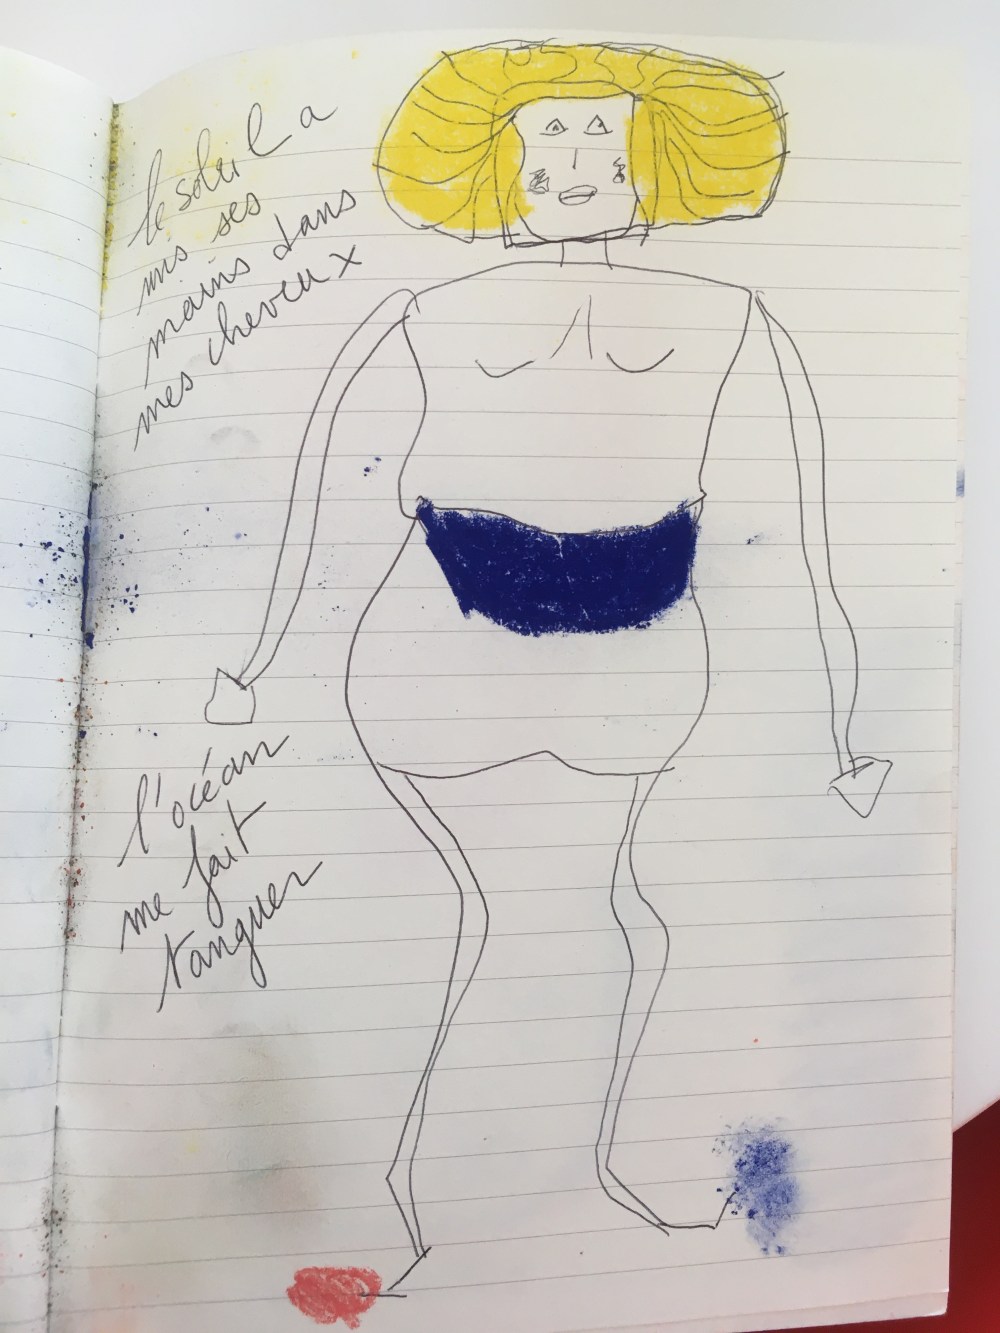 le soleil a
mis ses
mains dans
mes cheveux
l'océan
me fait
tanguer